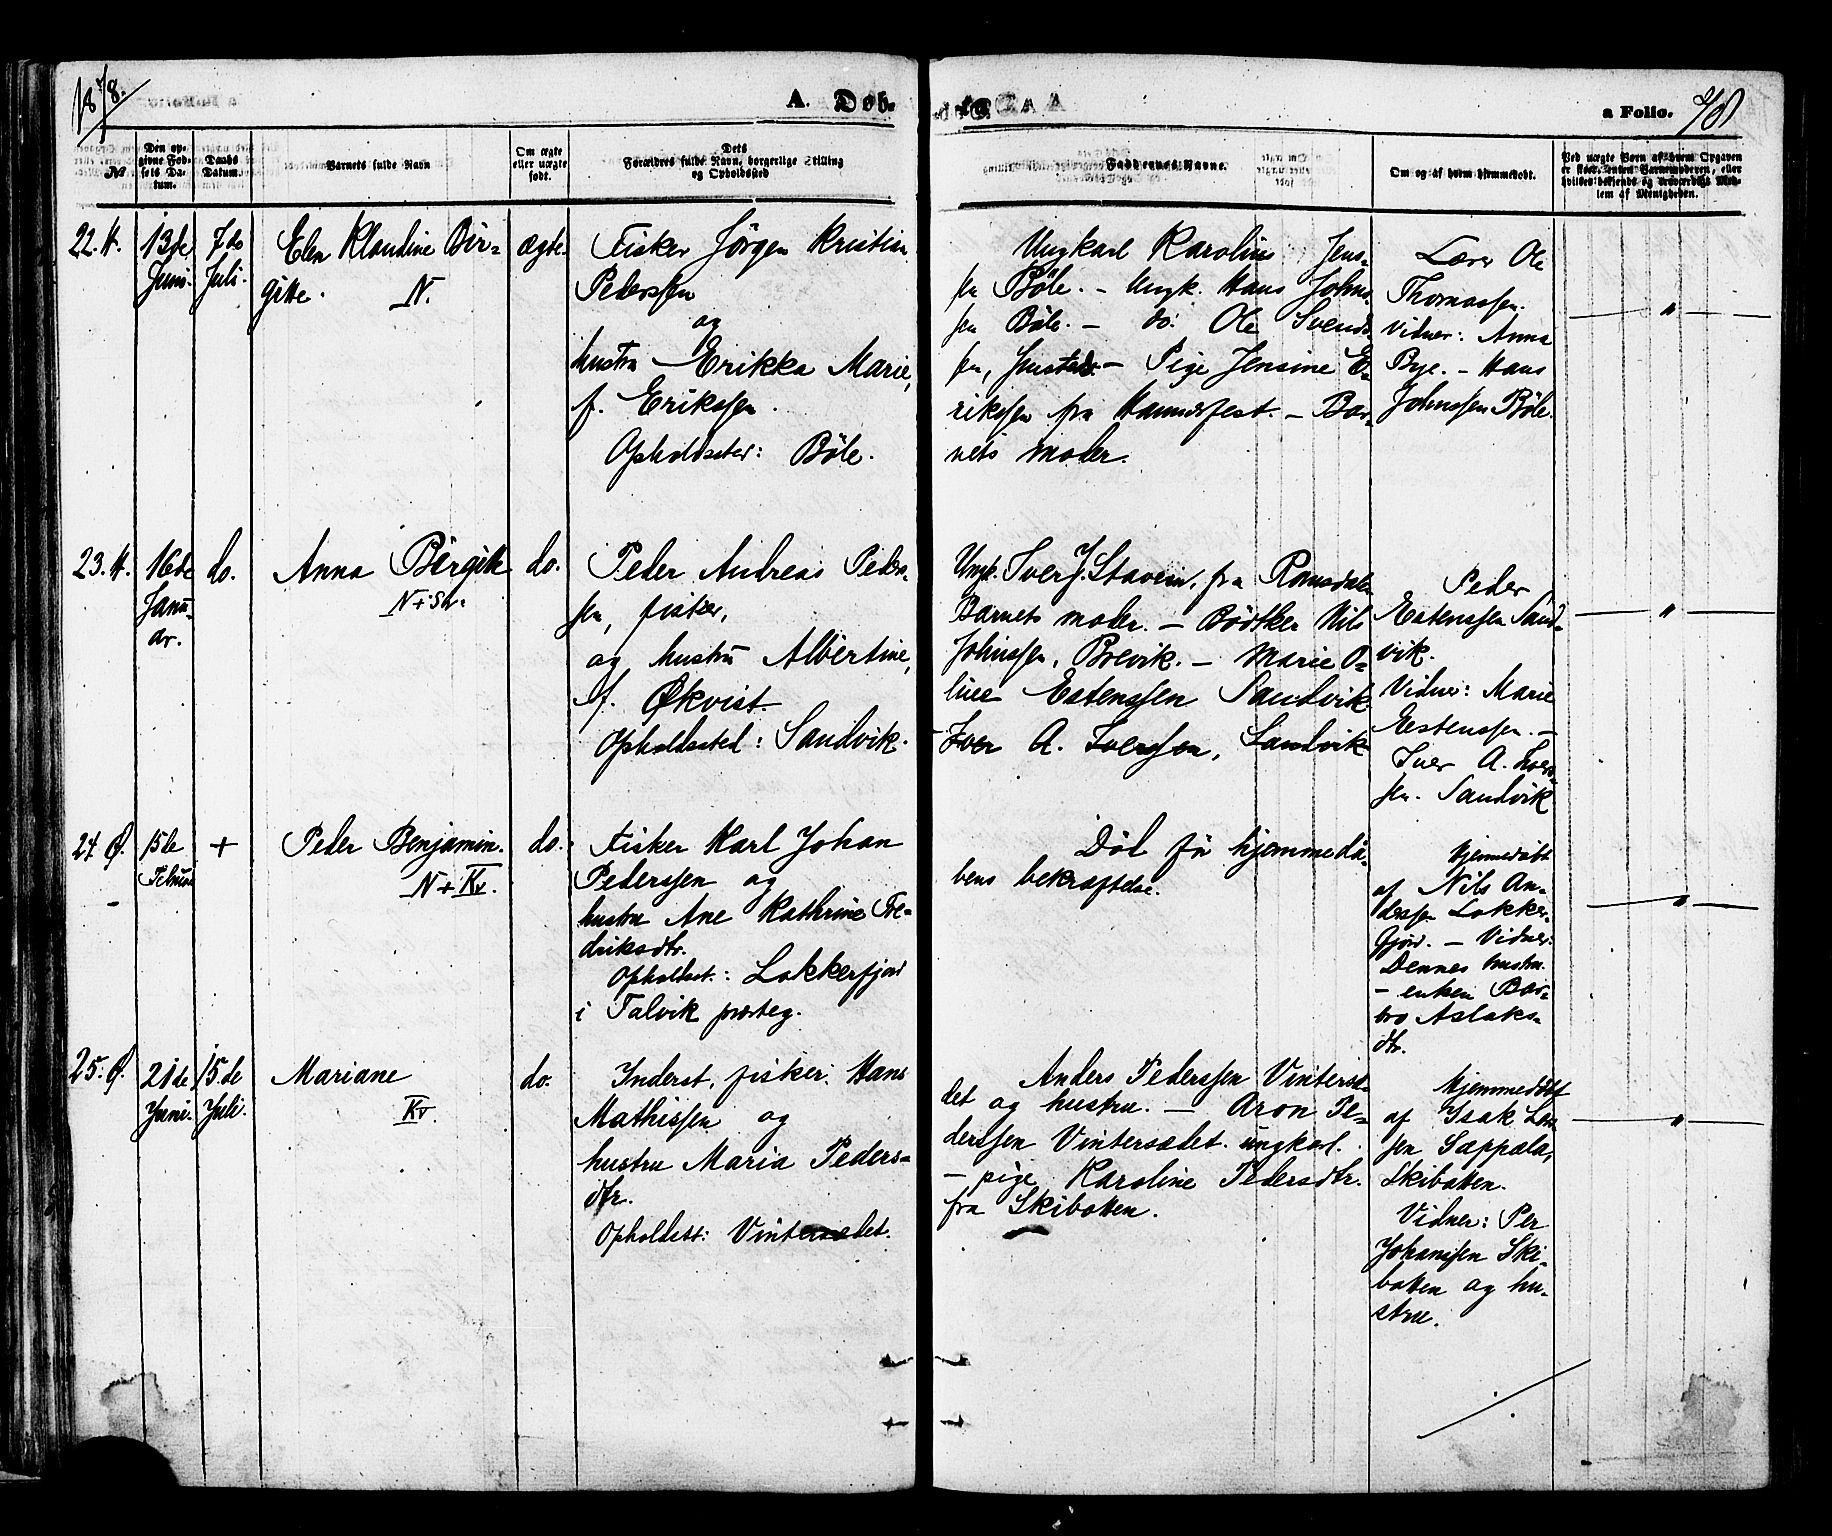 1878.
A. Døb.
a Folio. 48
No.
Den opgivne Fødsels Datum.
Daabs Datum.
Barnets fulde Navn
Om ægte eller uægte født.
Dets Forældres fulde Navn, borgerlige Stilling og Opholdssted
Faddernes Navne.
Om og af hvem hjemmedøbt.
Ved uægte Børn af hvem Opgaven er skeet, enten Barnemoderen, eller hvilket bekjendt og troværdigt Medlem af Menigheden.
22. K.
13de
Juni.
7de
Juli.
Elen Klaudine Bir-
gitte. N.
ægte.
Fisker Jørgen Kristian
Pederssen
og
hustru Erikka Marie,
f. Erikssen.
Opholdssted: Bôle.
Ungkarl Karolius Jens-
sen Bôle. – Ungk. Hans Johns-
sen Bôle. – do. Ole Svend-
sen, – Pige Jensine E-
rikssen fra Hammerfest. – Bar-
nets moder.
Lærer Ole
Thomassen.
Vidner: Anna
Bye. – Hans
Johnssen Bôle.
"
23. K.
16de
Janu-
ar.
do.
Anna Birgitte
N+Sk.
do.
Peder Andreas Peders-
sen, fisker,
og hustru Albertine,
f. Økvist
Opholdssted: Sandvik.
Ungk. Iver J. Stavem, fra Romsdalen
Barnets moder. – Bödtker Nils
Johnssen, Brevik. – Marie O-
line Estenssen Sandvik
– Iver A. Iverssen, Sandvik
Peder
Estenssen Sand-
vik.
Vidner: Marie
Estenssen. –
Iver A. Ivers-
sen. Sandvik
"
24. Ø.
15de
Februar
+
Peder Benjamin.
N + Kv.
do.
Fisker Karl Johan
Pederssen og
hustru Ane Kathrine Fre-
driksdtr.
Opholdsst.: Lokkerfjord
i Talvik præsteg.
Död för hjemmedå-
bens bekræftelse.
Hjemmedöbt
af Nils An-
derssen Lokker-
fjord. – Vidner:
Dennes hustru.
– enken Bar-
bro Aslaks-
dtr.
"
25. Ø.
21de
Juni.
15de
Juli.
Mariane
Kv.
do.
Inderst, fisker. Hans
Mathissen og
hustru Maria Peders-
dtr.
Opholdsst: Vintersædet.
Anders Pederssen Vintersæ-
det og hustru. – Aron Pe-
derssen Vintersædet. ungkarl.
– pige Karoline Pedersdtr.
fra Skibotten.
Hjemmedöbt
af Isak Lars-
sen Sappala,
Skibotten.
Vidner: Per
Johanssen Ski-
botten og hu-
strue.
"